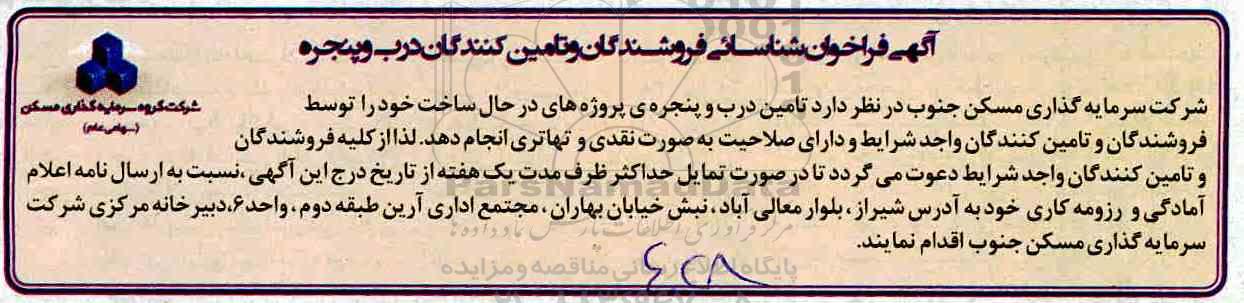 آگهی فراخوان شناسائی فروشندگان و تامین کنندگان درب و پنجره
شرکت گروه سرمایه گذاری مسکن
(سهامی عام)
شرکت سرمایه گذاری مسکن جنوب در نظر دارد تامین درب و پنجره ی پروژه های در حال ساخت خود را توسط
فروشندگان و تامین کنندگان واجد شرایط و دارای صلاحیت به صورت نقدی و تهاتری انجام دهد. لذا از کلیه فروشندگان
و تامین کنندگان واجد شرایط دعوت می گردد تا در صورت تمایل حداکثر ظرف مدت یک هفته از تاریخ درج این آگهی ،نسبت به ارسال نامه اعلام
آمادگی و رزومه کاری خود به آدرس شیراز ، بلوار معالی آباد ، نبش خیابان بهاران ، مجتمع اداری آرین طبقه دوم ، واحد۶،دبیرخانه مرکزی شرکت
سرمایه گذاری مسکن جنوب اقدام نمایند.
ParsNamadData
مرکز فرآوری اطلاعات پارس نماد داده ها
پایگاه اطلاع رسانی مناقصه و مزایده